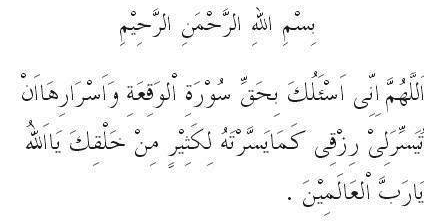 بِسْمِ اللهِ الرَّحْمَنِ الرَّحِيْمِ
اَللَّهُمَّ اِنِّى اَسْئَلُكَ بِحَقِّ سُوْرَةِ اْلوَقِعَةِ وَاَسْرَارِهَااَنْ
تُيَسِّرَلِىْ رِزْقِى كَمَايَسَّرْتَهُ لِكَثِيْرٍ مِنْ خَلْقِكَ يَااَللهُ
يَارَبَّ اْلعَالَمِيْنَ .